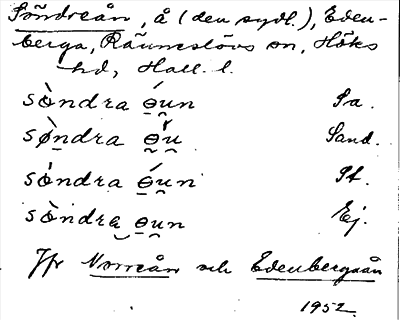 Söndreån, å (den sydl.), Eden-
berga, Ränneslövs sn, Höks
hd, Hall. l.
sòndra ɵ́un Sa.
sòndra ɵu Sand.
sòndra ɵ́un St.
sòndra ɵun Ej.
Jfr Norreån och Edenbergaån
1952.